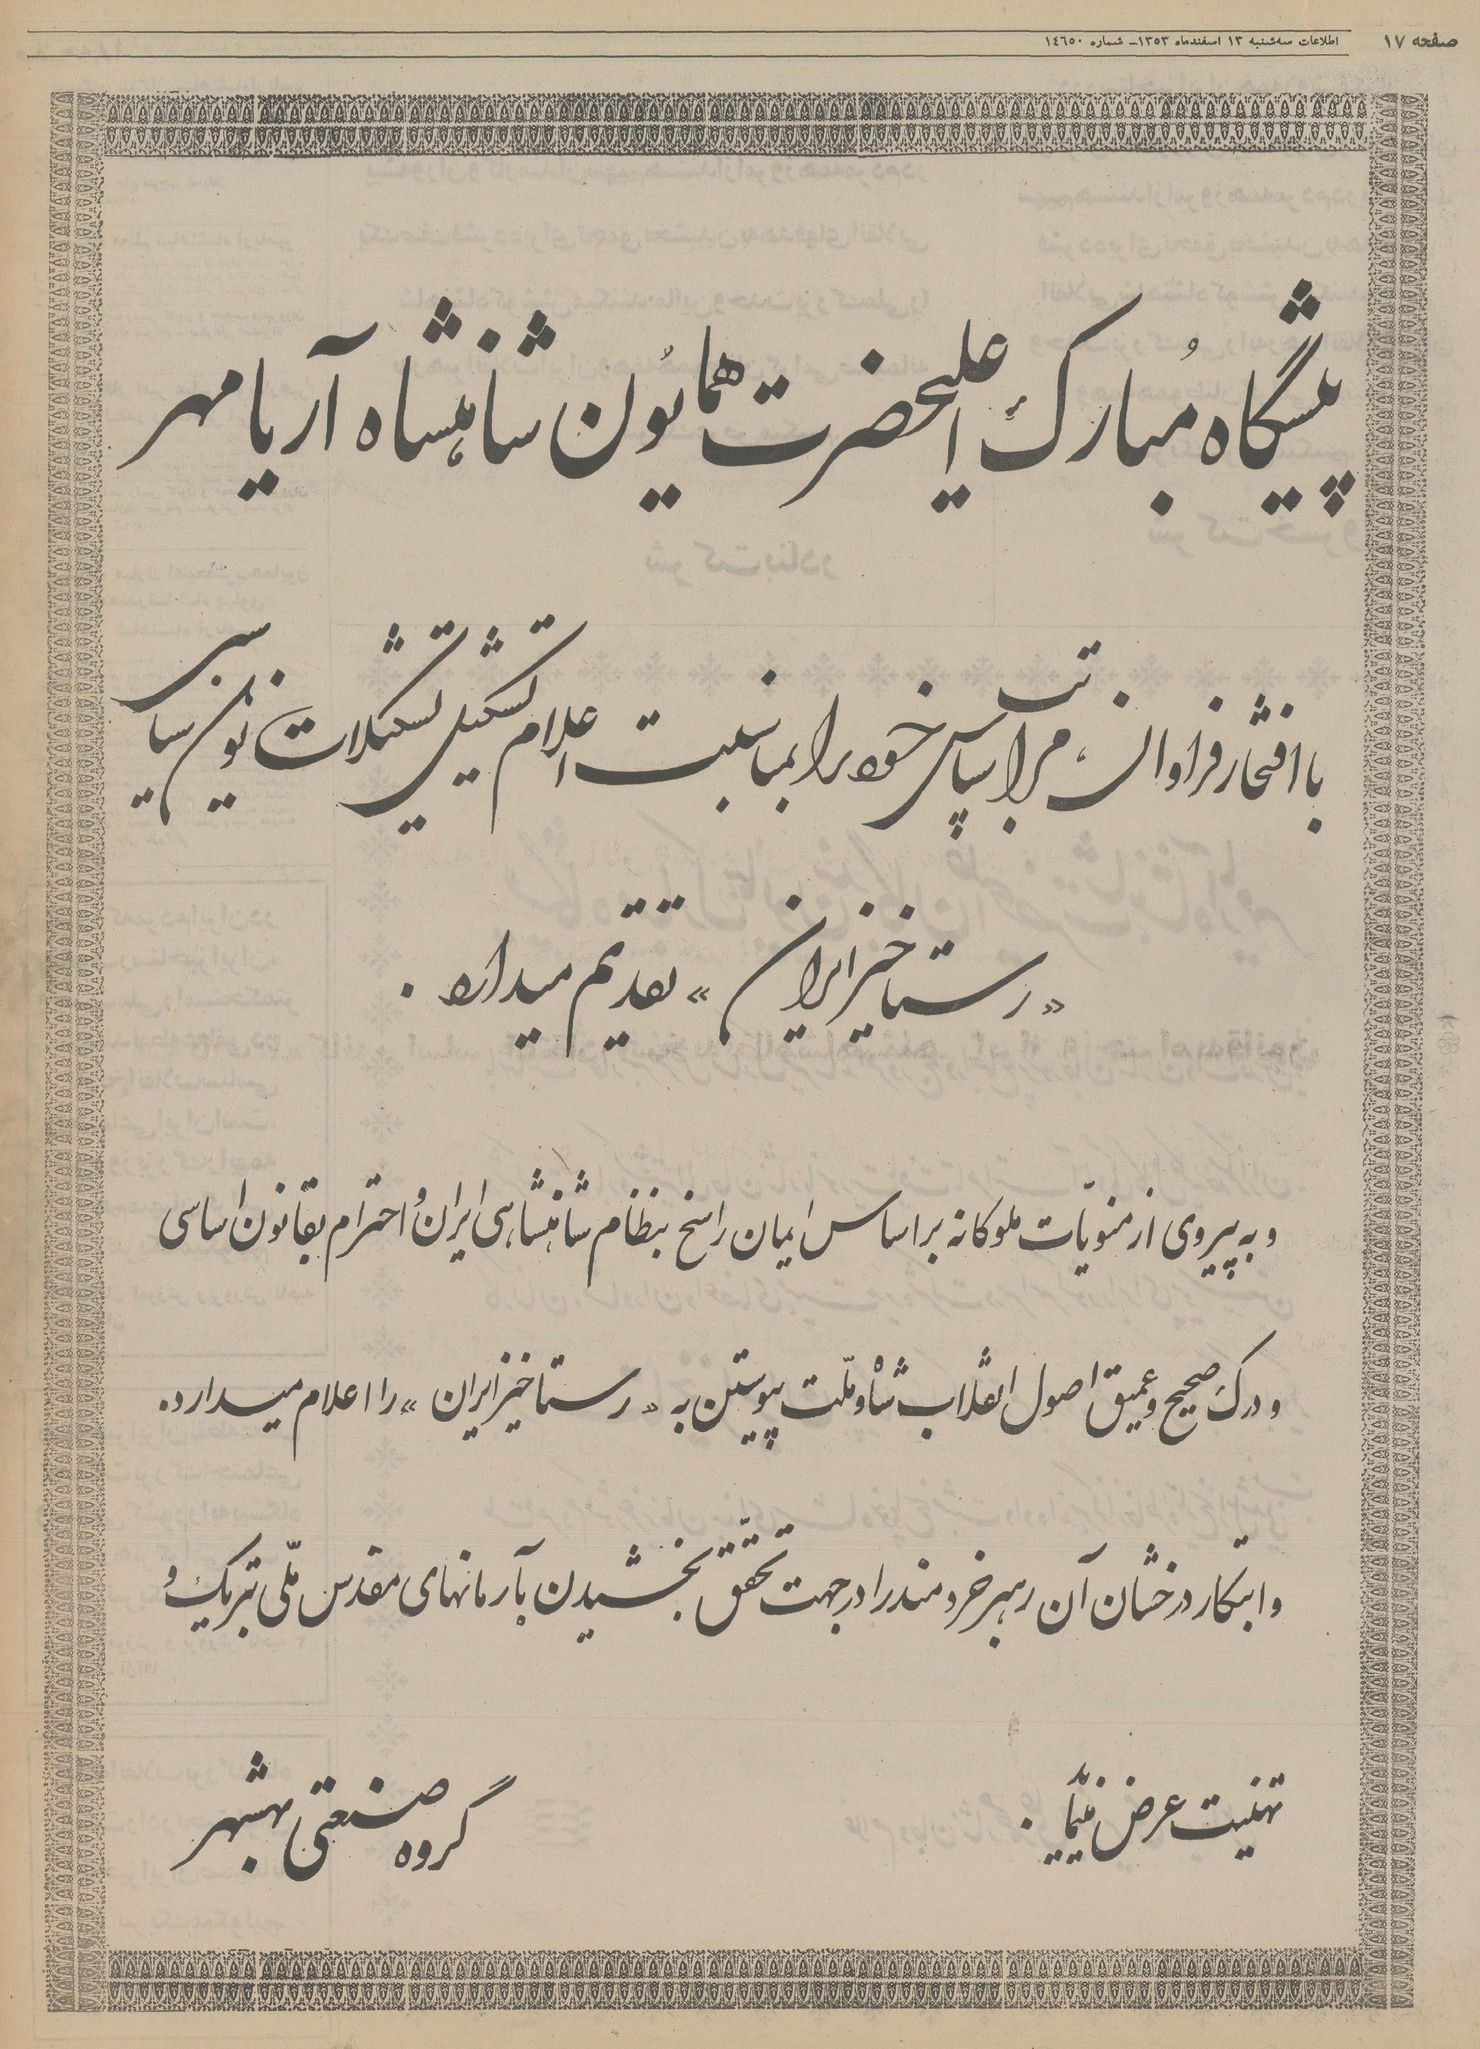 صفحه ۱۷
اطلاعات سه‌شنبه ۱۳ اسفندماه ۱۳۵۳ـ شماره ۱۴۶۵۰
پیشگاه مبارک اعلیحضرت همایون شاهنشاه آریامهر
با افتخار فراوان، مراتب سپاس خود را بمناسبت اعلام تشکیل تشکیلات نوین سیاسی
«رستاخیز ایران» تقدیم میدارد.
و به پیروی از منویات ملوکانه بر اساس ایمان راسخ بنظام شاهنشاهی ایران و احترام بقانون اساسی
و درک صحیح و عمیق اصول انقلاب شاه و ملّت پیوستن به «رستاخیز ایران» را اعلام میدارد.
و ابتکار درخشان آن رهبر خردمند را در جهت تحقّق بخشیدن بآرمانهای مقدس ملّی تبریک و
تهنیت عرض مینماید.
گروه صنعتی بهشهر